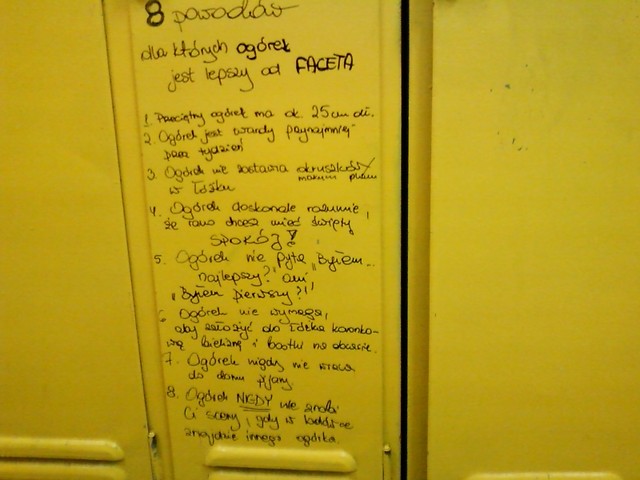 8 powodów
dla których ogórek
jest lepszy od FACETA
1. Przeciętny ogórek ma ok. 25 cm dł.
2. Ogórek jest twardy przynajmniej
przez tydzień
3. Ogórek nie zostawia okruszków
w łóżku
4. Ogórek doskonale rozumie,
że rano chcesz mieć święty
SPOKÓJ!
5. Ogórek nie pyta „Byłem
najlepszy?" ani
„Byłem pierwszy?!"
6. Ogórek nie wymaga,
aby założyć do łóżka koronko-
wą bieliznę i botki na obcasie.
7. Ogórek nigdy nie wraca
do domu pijany.
8. Ogórek NIGDY nie zrobi
Ci sceny, gdy w lodówce
znajdzie innego ogórka.